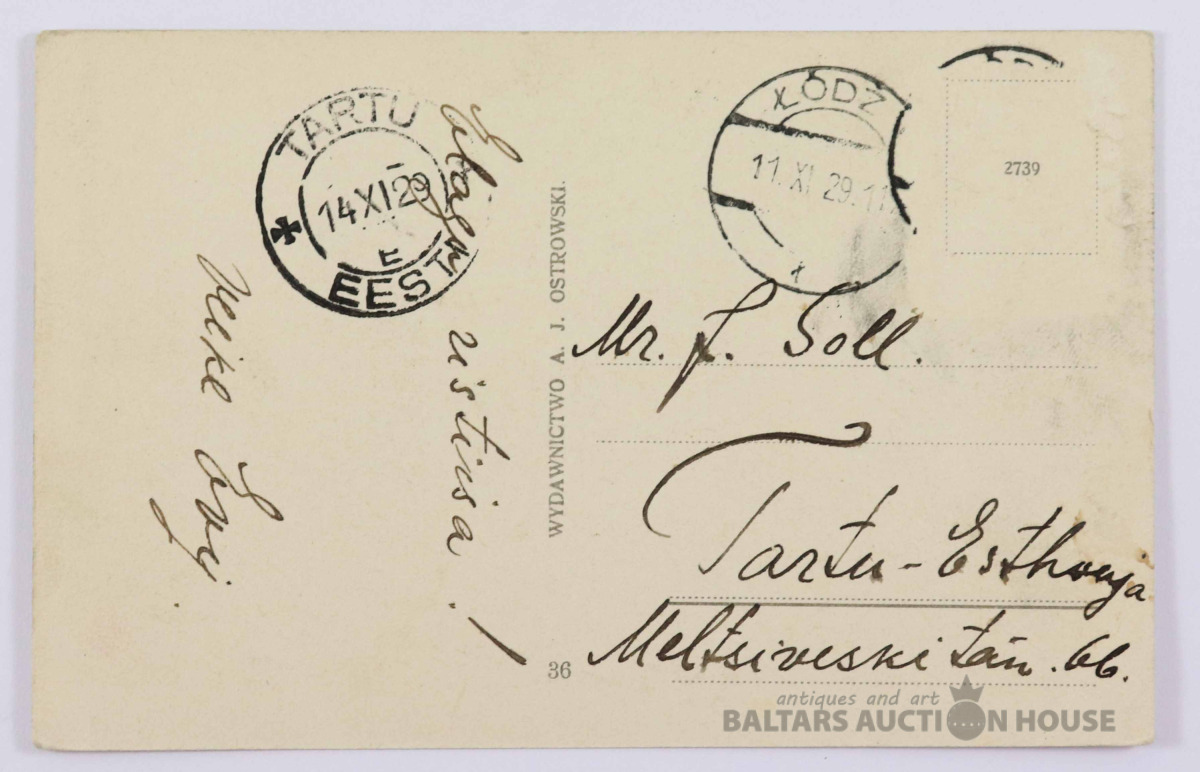 TARTU
14 XI 29
E
EESTI
ustusa.
WYDAWNICTWO A. J. OSTROWSKI.
36
ŁÓDZ
11.XI 29.11
2739
Mr. J. Soll.
Tartu - Esthonya
Meltsiveski tän. 66.
antiques and art
BALTARS AUCTION HOUSE